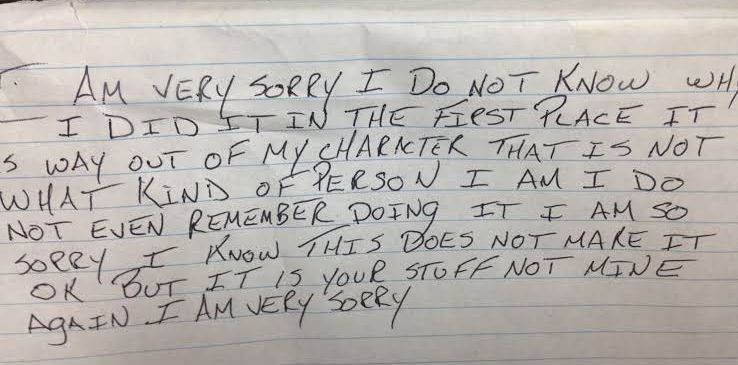 I AM VERY SORRY I DO NOT KNOW WH
I DID IT IN THE FIRST PLACE IT
S WAY OUT OF MY CHARACTER THAT IS NOT
WHAT KIND OF PERSON I AM I DO
NOT EVEN REMEMBER DOING IT I AM SO
SORRY I KNOW THIS DOES NOT MAKE IT
OK BUT IT IS YOUR STUFF NOT MINE
AGAIN I AM VERY SORRY